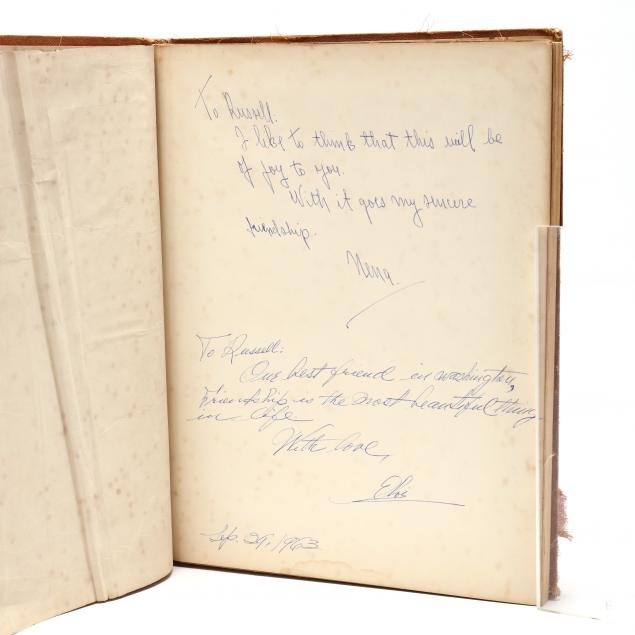 To Russell:
I like to think that this will be
of joy to you.
With it goes my sincere
friendship.
Nena.
To Russell:
Our best friend in washington,
Friendship is the most beautiful thing
in life.
With love,
Sep. 29, 1963